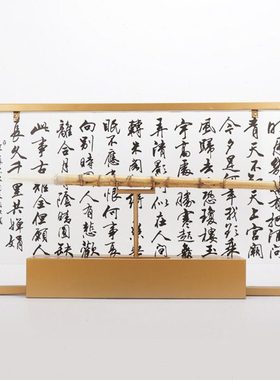 把酒問
青天不知天上宮闕
今夕是何年我欲乘
風歸去又恐瓊樓玉
宇高處不勝寒起舞
弄清影何似在人間
轉朱閣綺戶
眠不應有恨何事長
向別時圓人有悲歡
離合月有陰晴圓缺
此事古難全但願人
長久千里共嬋娟